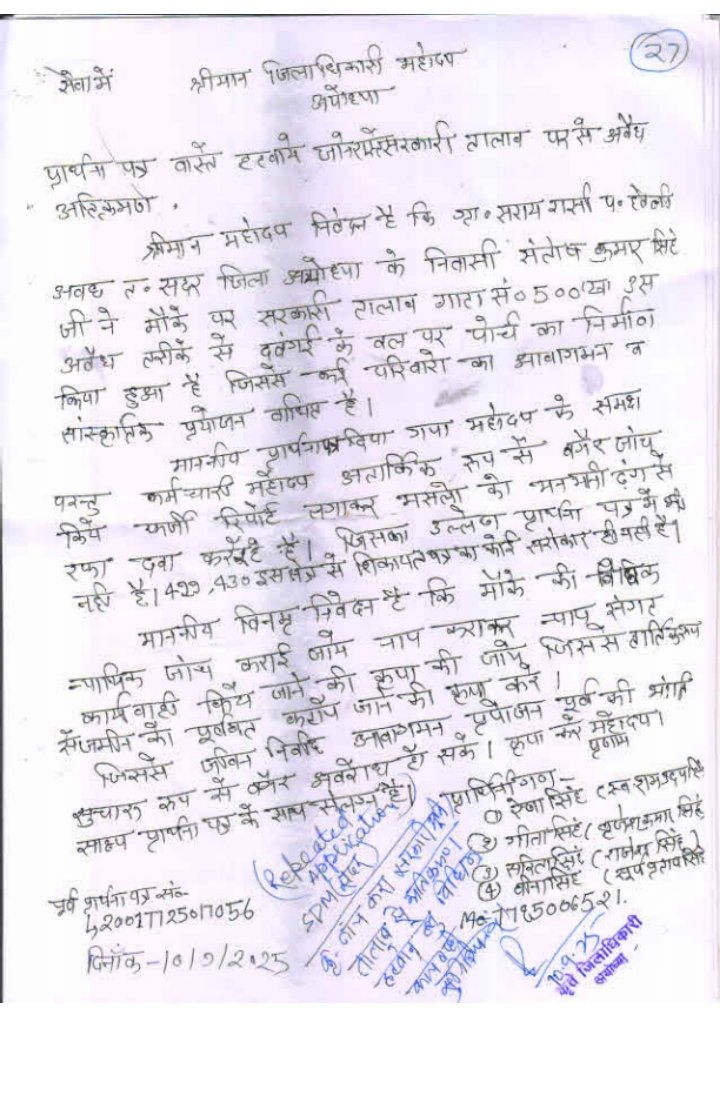 27
सेवा में श्रीमान जिलाधिकारी महोदय
अयोध्या
प्रार्थना पत्र वास्ते हटवाये जाने सरकारी तालाब पर से अवैध
अतिक्रमण .
श्रीमान महोदय निवेदन है कि ग्रा. सराय रासी प. हवेली
अवध त. सदर जिला अयोध्या के निवासी संतोष कुमार सिंह
जी ने मौके पर सरकारी तालाब गाटा सं० 500 उस
अवैध तरीके से दबंगई के बल पर पोर्च का निर्माण
किया हुआ है जिससे कई परिवारो का आवागमन व
सांस्कृतिक प्रयोजन बाधित है।
माननीय प्रार्थनापत्र दिया गया महोदय के समक्ष
परन्तु कर्मचारी महोदय अतार्किक रूप से बगैर जांच
किये फर्जी रिपोर्ट लगाकर मसलो को मनमानी ढंग से
रफा दवा कर रहे है। जिसका उल्लेख प्रार्थना पत्र में
नही है। 429, 430 इस से शिकायत पत्र का कोई सरोकार ही नही है।
माननीय विनम्र निवेदन है कि मौके की विधिक
न्यायिक जांच कराई जाये नाप कराकर न्याय संगत
कार्यवाही किये जाने की कृपा की जाये जिससे
जमीन को पूर्ववत कराये जाने की कृपा करें।
जिससे जीवन निर्वाह आवागमन प्रयोजन पूर्व की भांति
सुचारू रूप से बगैर अवरोध हो सके। कृपा करें महोदय।
साक्ष्य प्रार्थना पत्र के साथ संलग्न है। प्रणाम
प्रार्थिनीगण -
① सिंह (स्व राम
② गीता सिंह ( कुमार सिंह
③ सिंह ( सिंह)
④ बीना सिंह ( सिंह
Mo. 7785006521.
पूर्व प्रार्थना पत्र सं०-
42001725017056
दिनाँक - 10/9/2025
(Repeated Application)
SDM सदर
कृ. जांच करा सरकारी
तालाब से अतिक्रमण
हटवाने की
कार्यवाही
10.9.25
कृते जिलाधिकारी
अयोध्या